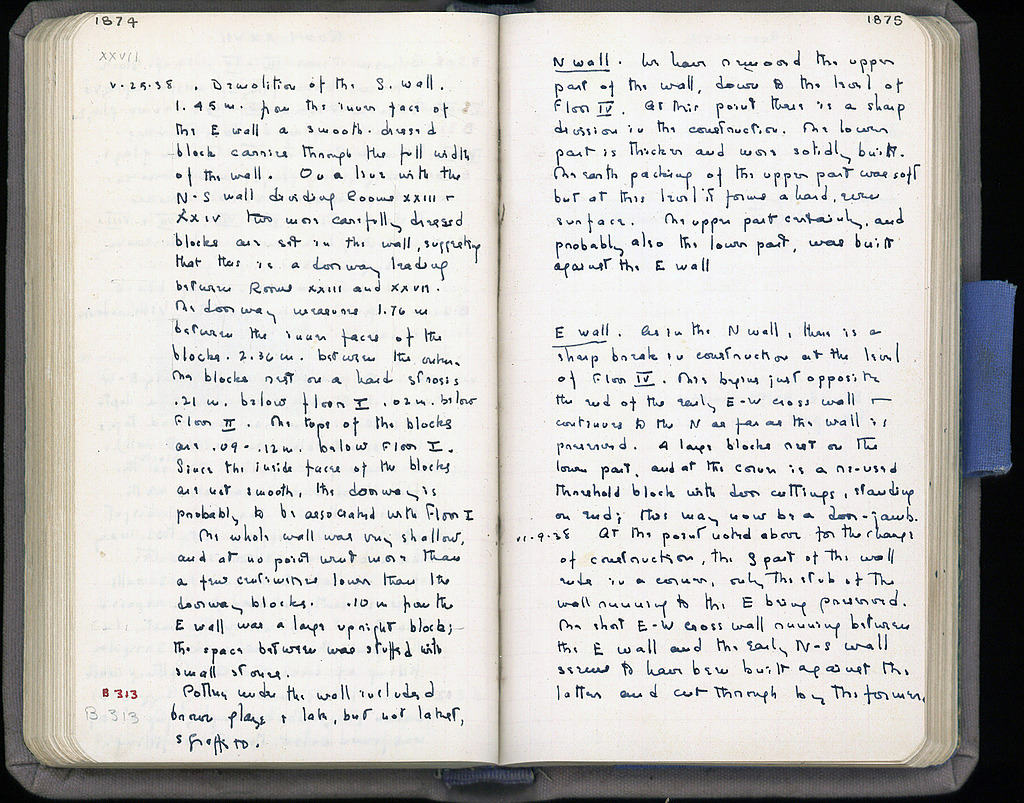 1874
XXVII
V-25-38. Demolition of the S. wall.
1.45 m. from the inner face of
the E wall a smooth-dressed
block carries through the full width
of the wall. On a line with the
N-S wall dividing Rooms XXIII +
XXIV two more carefully dressed
blocks are set in the wall, suggesting
that this is a doorway leading
between Rooms XXIII and XXVII.
The doorway measures 1.76 m
between the inner faces of the
blocks. 2.36 m. between the outer.
The blocks rest on a hard strosis
.21 m. below floor V .02 m. below
Floor II. The tops of the blocks
are .09-.12 m. below Floor I.
Since the inside faces of the blocks
are not smooth, the doorway is
probably to be associated with Floor I
The whole wall was very shallow,
and at no point went more than
a few centimetres lower than the
doorway blocks. .10 m from the
E wall was a large upright block;
the space between was stuffed with
small stones.
B 313 Pottery under the wall included
B 313 brown glaze + late, but not latest,
sgraffito.
1875
N wall. We have removed the upper
part of the wall, down to the level of
Floor IV. At this point there is a sharp
division in the construction. The lower
part is thicker and more solidly built.
The earth packing of the upper part was soft
but at this level it forms a hard, even
surface. The upper part certainly, and
probably also the lower part, was built
against the E wall
E wall. As in the N wall, there is a
sharp break in construction at the level
of Floor IV. This begins just opposite
the end of the early E-W cross wall +
continues to the N as far as the wall is
preserved. 4 large blocks rest on the
lower part, and at the corner is a re-used
threshold block with door cuttings, standing
on end; this may now be a door-jamb.
VI-9-38 At the point noted above for the change
of construction, the S part of the wall
ends in a corner, only the stub of the
wall running to the E being preserved.
The short E-W cross wall running between
the E wall and the early N-S wall
seems to have been built against the
latter and cut through by the former.